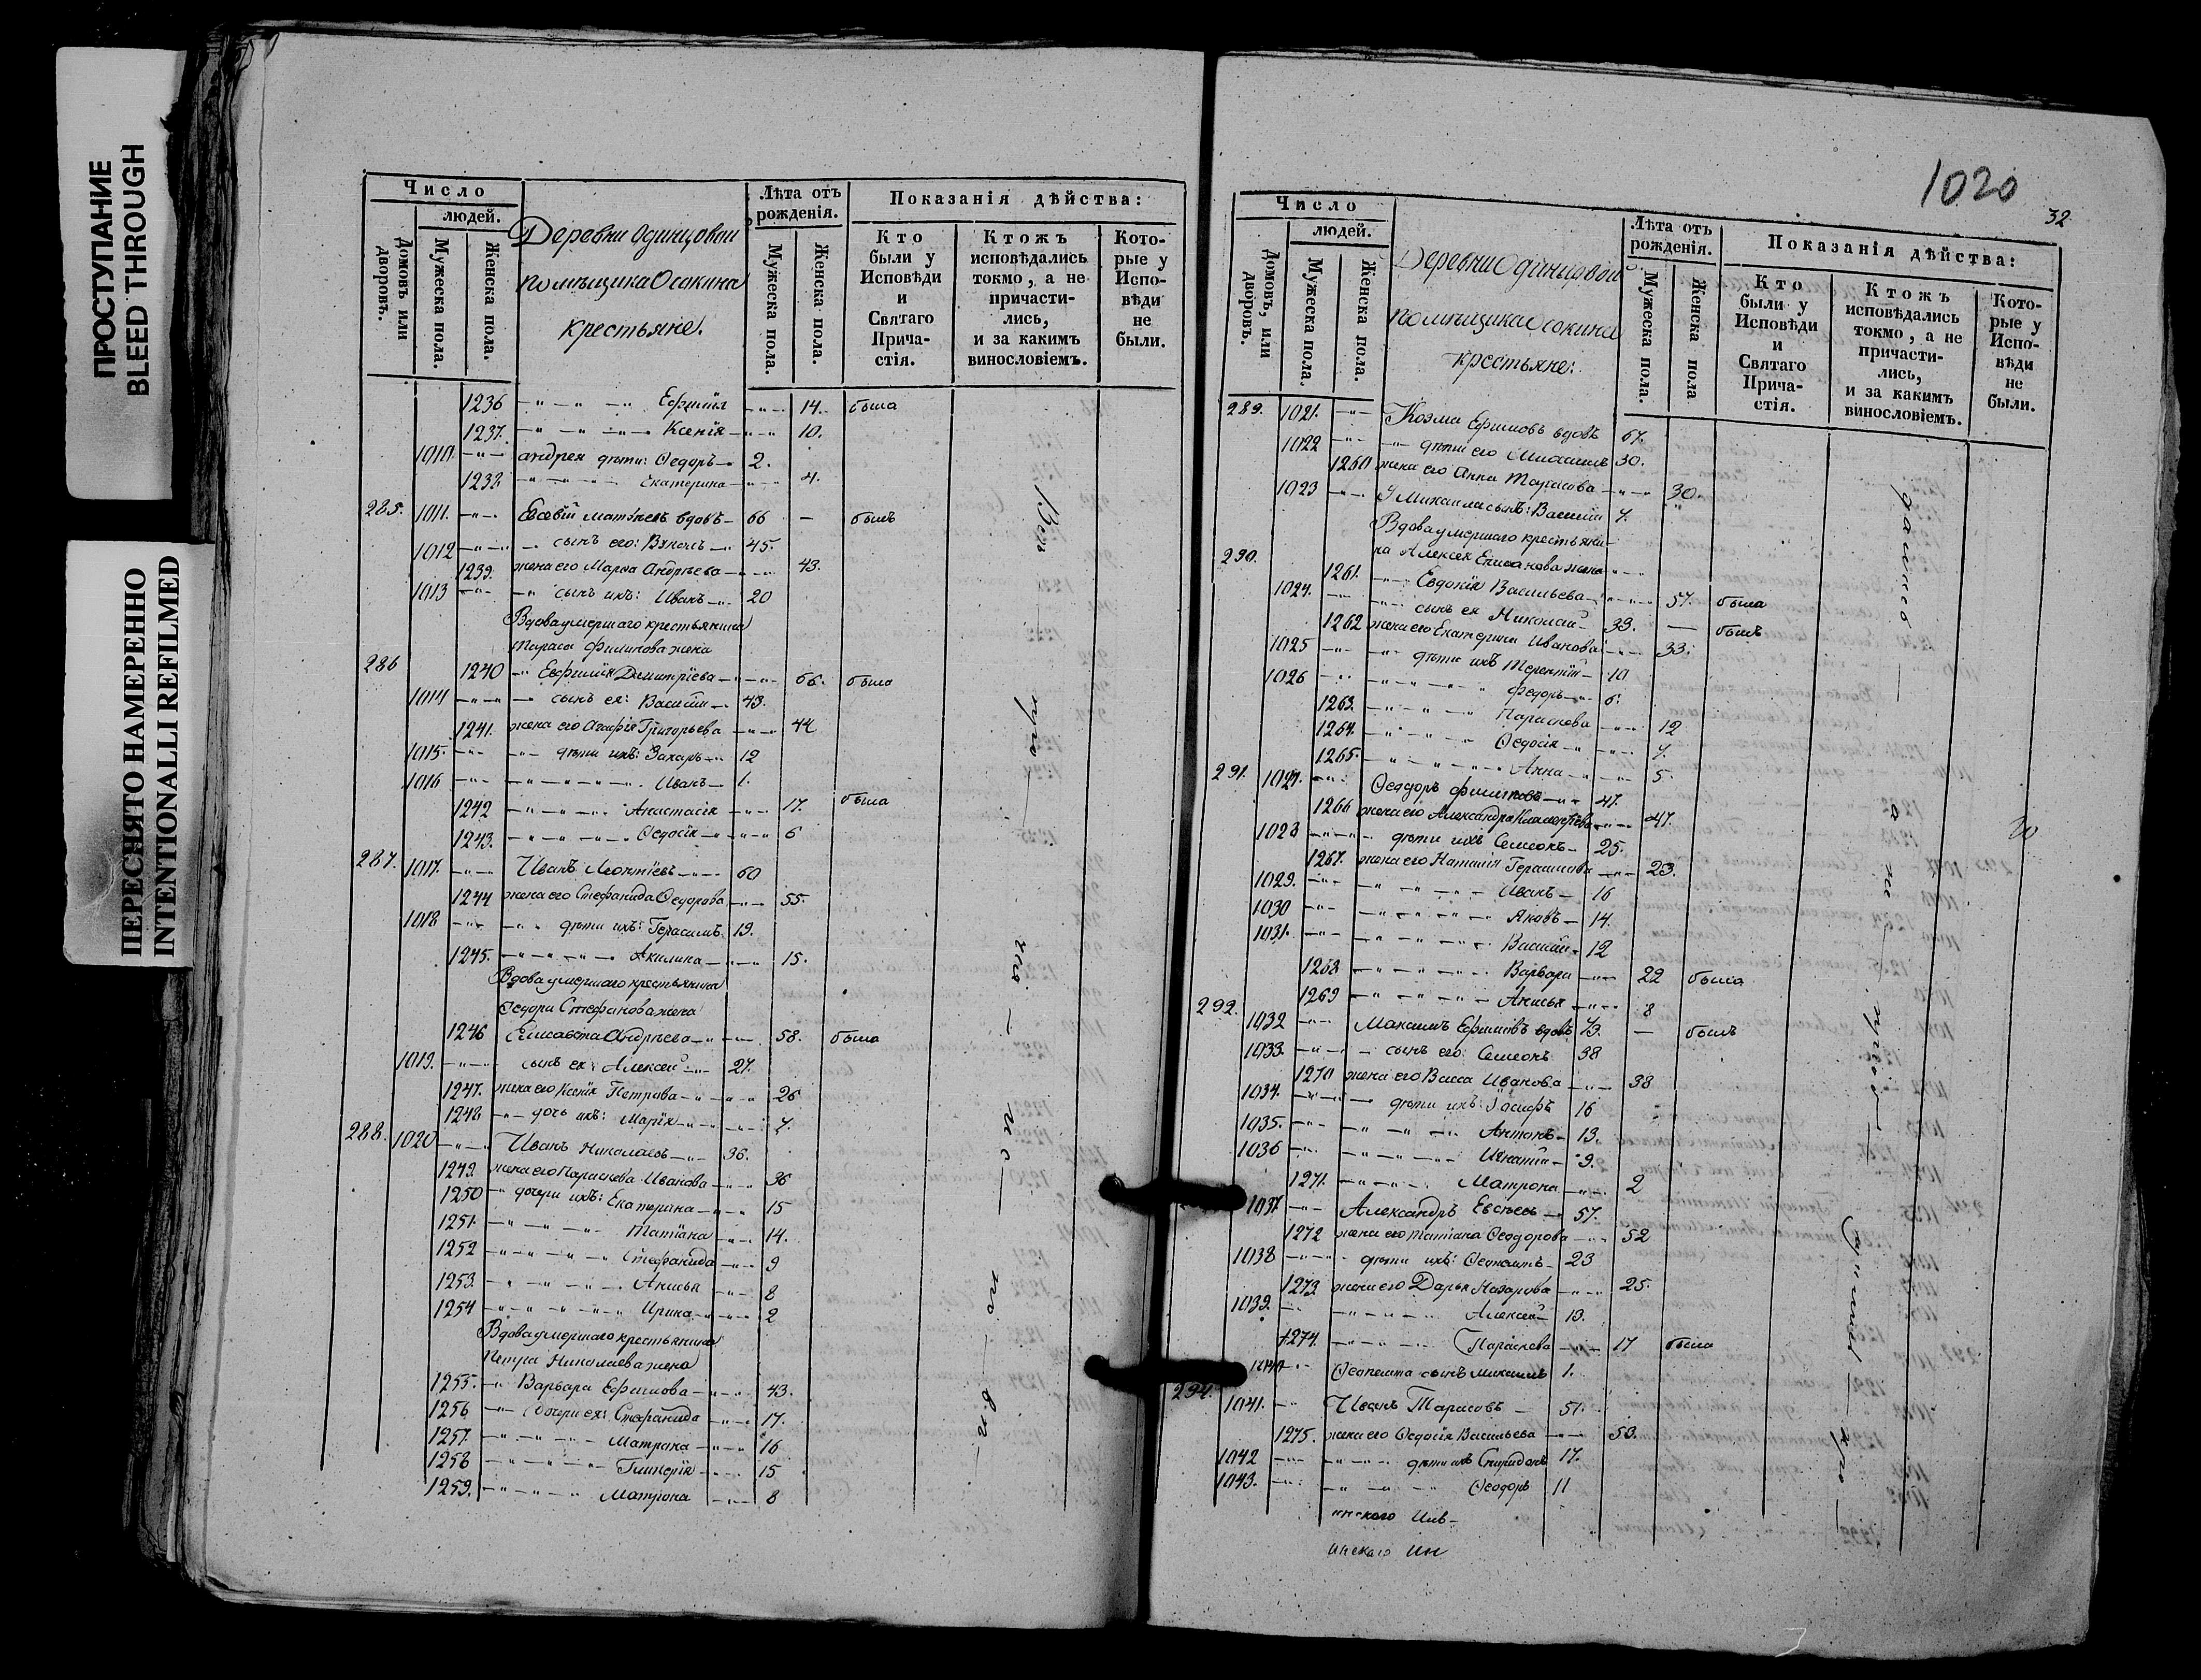 ПРОСТУПАНИЕ
BLEED THROUGH
ПЕРЕСНЯТО НАМЕРЕННО
INTENTIONALLI REFILMED
Число
людей.
Домовъ или дворовъ.
Мужеска пола.
Женска пола.
Деревни Одинцовой
помѣщика Осокина
крестьяне.
Лѣта отъ рожденія.
Мужеска пола.
Женска пола.
Показанія дѣйства:
Кто были у Исповѣди и Святаго Причастія.
Ктожъ исповѣдались токмо, а не причастились, и за какимъ винословіемъ.
Которые у Исповѣди не были.
1236 Ефимія 14. была
1237. Ксенія 10.
1010. Андрея дѣти: Ѳедоръ 2.
1238. Екатерина 4.
285. 1011. вдовъ 66 былъ
1012 сынъ его: 45.
1239. жена его Марѳа Андрѣева 43.
1013 сынъ ихъ: Иванъ 20
Вдова умершаго крестьянина
Тараса Филипова жена
286 1240 Евфимія Димитріева 66. была
1014 сынъ ея: Василій 43.
1241. жена его Агафія Григорьева 44
1015. дѣти ихъ: Захаръ 12
1016 Иванъ 1.
1242 Анастасія 17. была
1243. Ѳедосія 6
287. 1017. Иванъ Леонтіевъ 60
1244 жена его Стефанида Ѳедорова 55.
1018 дѣти ихъ: Герасимъ 19.
1245. Акилина 15.
Вдова умершаго крестьянина
Ѳедора Стефанова жена
1246 Елисавета Андрѣева 58. была
1019. сынъ ея: Алексей 27.
1247. жена его Ксенія Петрова 26
1248 дочь ихъ: Марія 7.
288. 1020 Иванъ Николаевъ 36.
1249. жена его Параскева Иванова 36
1250 дочери ихъ: Екатерина 15
1251. Татіана 14.
1252 Стефанида 9
1253. Анисья 8
1254 Ирина 2
Вдова умершаго крестьянина
Петра Николаева жена
1255. Варвара Ефимова 43.
1256 дочери ея: Стефанида 17.
1257. Матрона 16
1258 Гликерія 15
1259. Матрона 8
1020
32
Число
людей.
Домовъ, или дворовъ.
Мужеска пола.
Женска пола.
Деревни Одинцовой
помѣщика Осокина
крестьяне:
Лѣта отъ рожденія.
Мужеска пола.
Женска пола
Показанія дѣйства:
Кто были у Исповѣди и Святаго Причастія.
Ктожъ исповѣдались токмо, а не причастились, и за какимъ винословіемъ.
Которые у Исповѣди не были.
289. 1021. Козма Ефимовъ вдовъ 67.
1022 дѣти его Михаилъ 30.
1260 жена его Анна Тарасова 30.
1023 У Михаила сынъ: Василій 7.
Вдова умершаго крестьяни-
290. на Алексея жена
1261. Евдокія Васильева 57. была
1024. сынъ ея Николай 33. былъ
1262 жена его Екатерина Иванова 33.
1025 дѣти ихъ Терентій 10
1026 Федоръ 6.
1263. Параскева 12
1264. Ѳедосія 7.
1265. Анна 5.
291. 1027. Ѳеодоръ Филиповъ 47.
1266 жена его Александра 47.
1028 дѣти ихъ Семіонъ 25.
1267. жена его Наталія Герасимова 23.
1029. Иванъ 16
1030 Яковъ 14.
1031. Василій 12
1268 Варвара 22 была
1269 Анисья 8
292. 1032 Максимъ Ефимовъ вдовъ 73. былъ
1033. сынъ его: Семіонъ 38
1270 жена его Васса Иванова 38
1034. дѣти ихъ: Іосифъ 16
1035. Антонъ 13.
1036 Игнатій 9.
1271. Матрона 2
1037 Александръ Евсѣевъ 57.
1272 жена его Татіана Ѳеодорова 52
1038 дѣти ихъ: 23
1273 жена его Дарья Назарова 25.
1039. Алексей 13.
1274. Параскева 17 была
1040 сынъ Михаилъ 1.
294. 1041. Иванъ Тарасовъ 51.
1275. жена его Ѳедосія Васильева 53.
1042 дѣти ихъ Спиридонъ 17.
1043. Ѳеодоръ 11